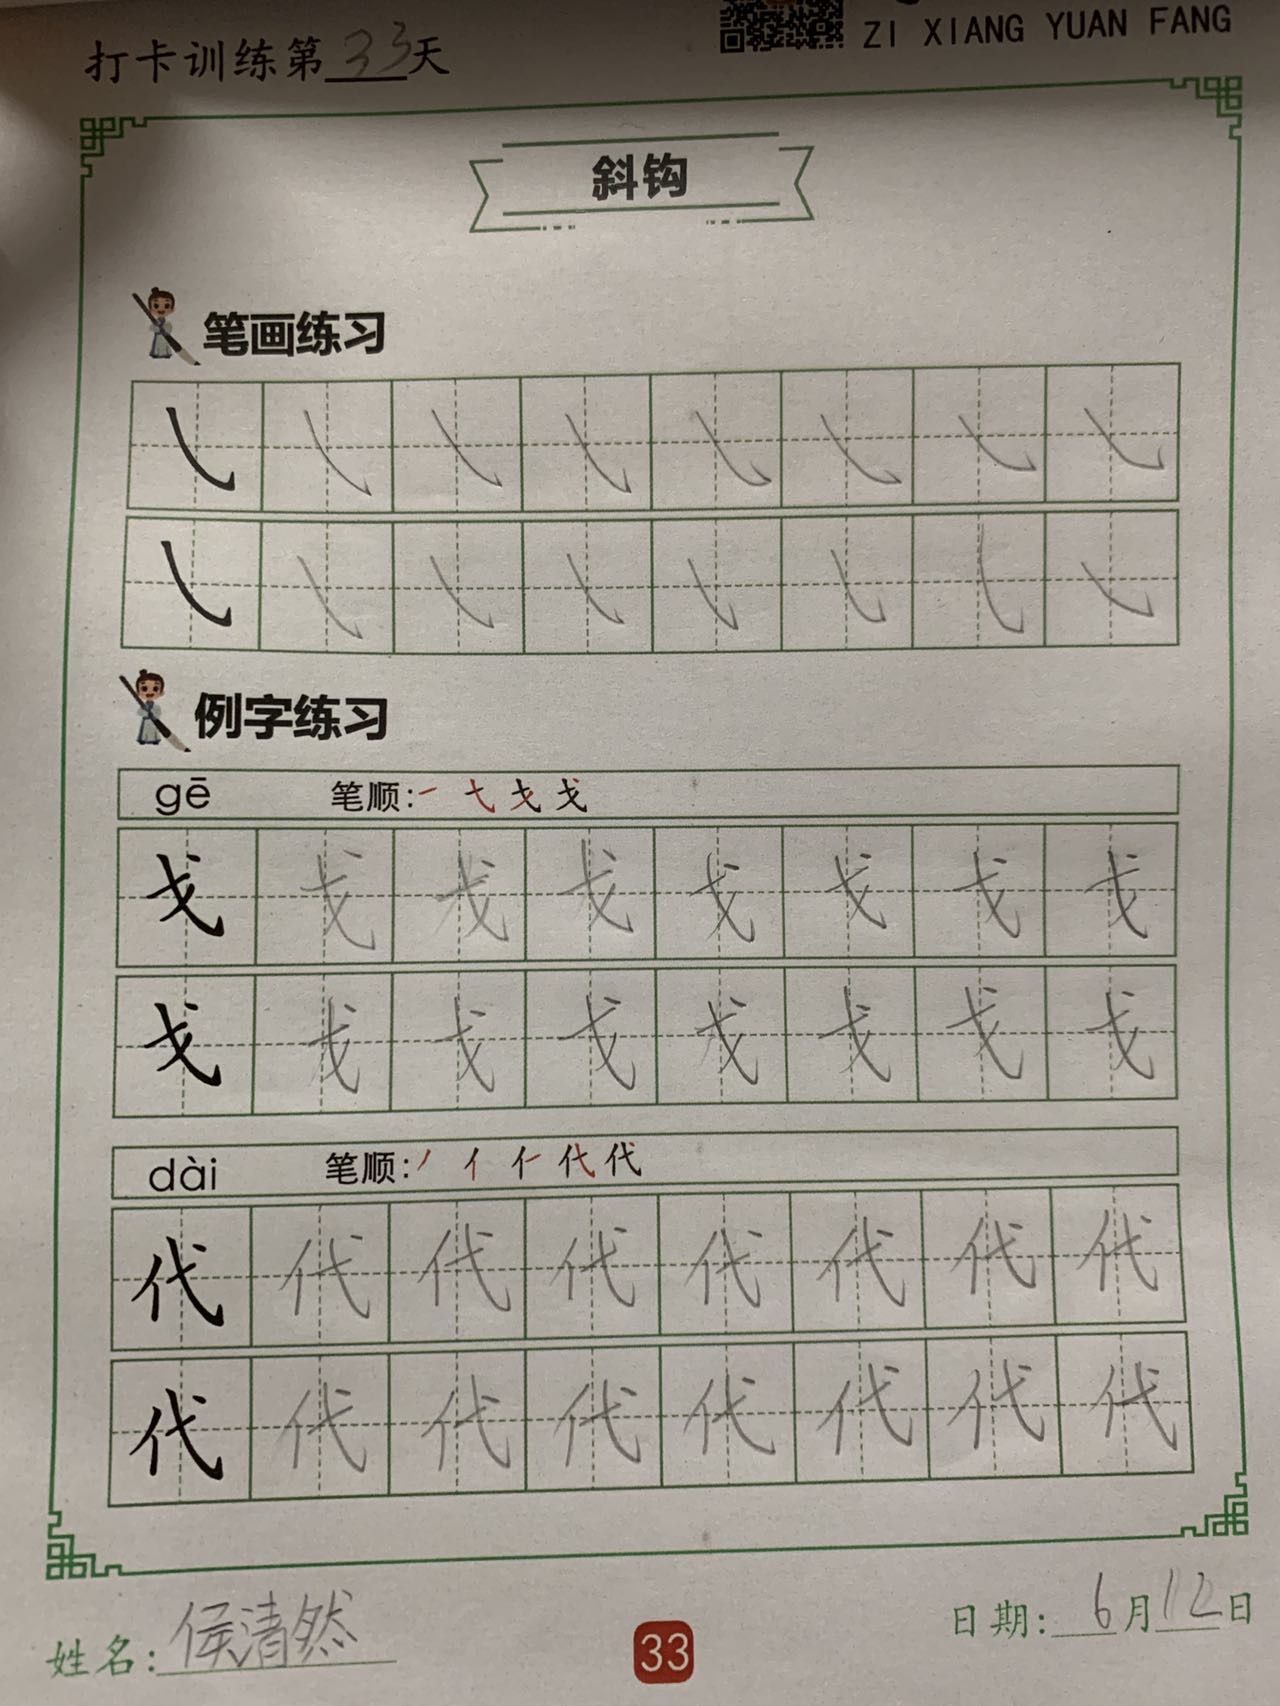 打卡训练第33天
ZI XIANG YUAN FANG
斜钩
笔画练习
例字练习
gē 笔顺:㇐ 弋 戈 戈
戈 戈 戈 戈 戈 戈 戈 戈
戈 戈 戈 戈 戈 戈 戈 戈
dài 笔顺:丿 亻 代 代
代 代 代 代 代 代 代 代
代 代 代 代 代 代 代 代
姓名:侯清然
33
日期:6月12日